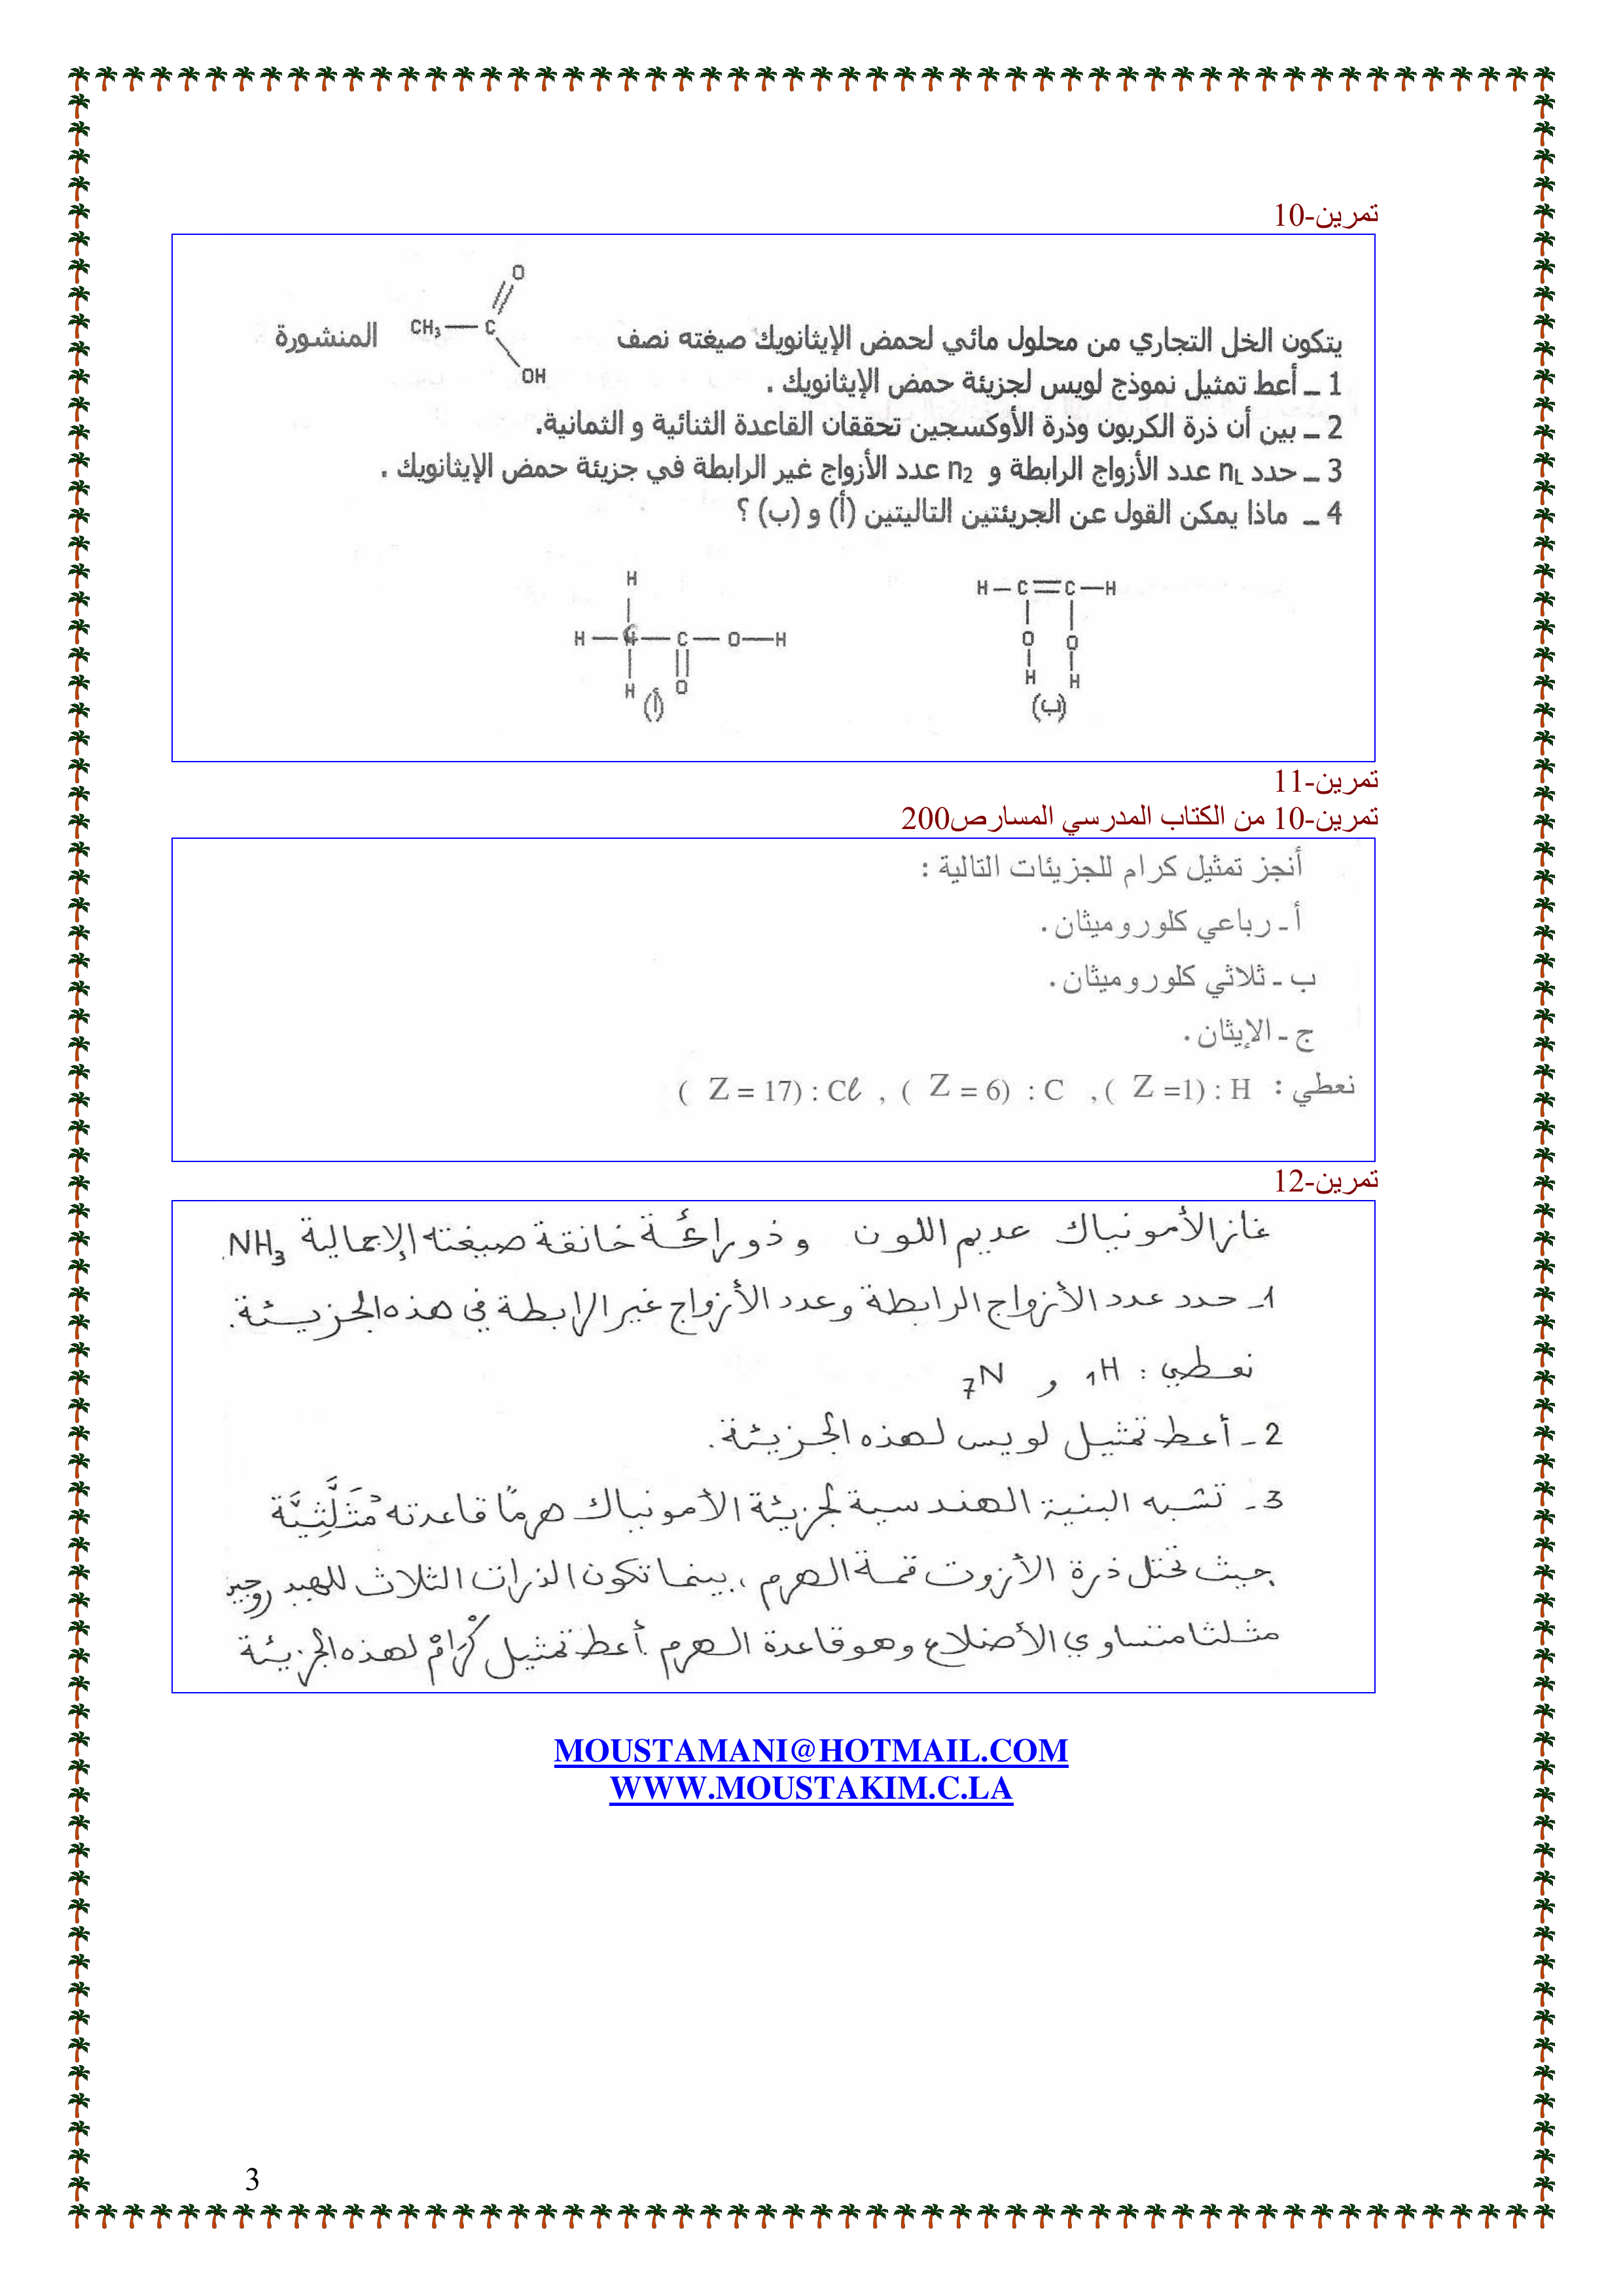 تمرين-10
O
يتكون الخل التجاري من محلول مائي لحمض الإيثانويك صيغته نصف CH₃ — C المنشورة
OH
1 ـ أعط تمثيل نموذج لويس لجزيئة حمض الإيثانويك .
2 ـ بين أن ذرة الكربون وذرة الأوكسجين تحققان القاعدة الثنائية و الثمانية.
3 ـ حدد n_L عدد الأزواج الرابطة و n₂ عدد الأزواج غير الرابطة في جزيئة حمض الإيثانويك .
4 ـ ماذا يمكن القول عن الجريئتين التاليتين (أ) و (ب) ؟
H
H — C = C — H
H — C — C — O — H
O O
H O
H H
(أ) (ب)
تمرين-11
تمرين-10 من الكتاب المدرسي المسارص200
أنجز تمثيل كرام للجزيئات التالية :
أ ـ رباعي كلوروميثان .
ب ـ ثلاثي كلوروميثان .
ج ـ الإيثان .
نعطي : H : (Z =1) , C : (Z = 6) , Cℓ : (Z = 17)
تمرين-12
غاز الأمونياك عديم اللون و ذو رائحة خانقة صيغته الإجمالية NH₃.
1ـ حدد عدد الأزواج الرابطة وعدد الأزواج غير الرابطة في هذه الجزيئة.
نعطي : ₁H و ₇N
2 ـ أعط تمثيل لويس لهذه الجزيئة.
3 ـ تشبه البنية الهندسية لجزيئة الأمونياك هرمًا قاعدته مُثَلَّثِيَّة
حيث تحتل ذرة الأزوت قمة الهرم ، بينما تكون الذرات الثلاث للهيدروجين
مثلثا متساوي الأضلاع وهو قاعدة الهرم . أعط تمثيل كْرَامْ لهذه الجزيئة
MOUSTAMANI@HOTMAIL.COM
WWW.MOUSTAKIM.C.LA
3